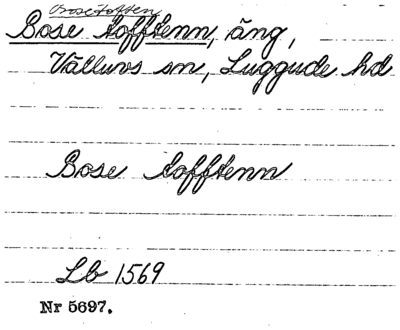 Bosetoften
Bose tofftenn, äng,
Välluvs sn, Luggude hd
Bose tofftenn
Lb 1569
Nr 5697.